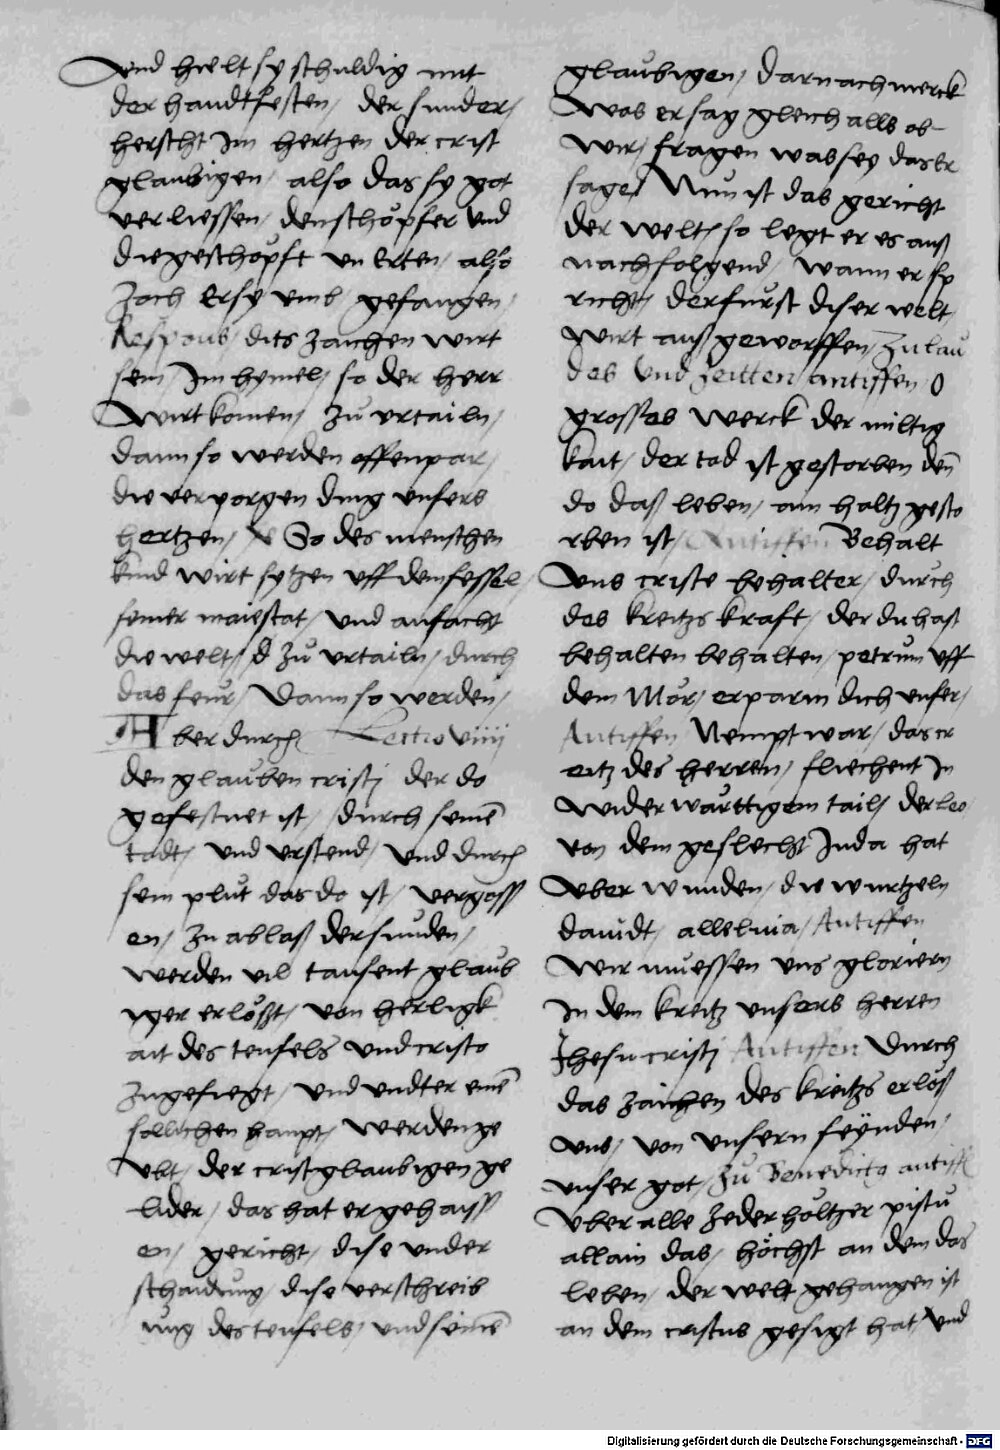 Und hielt sy schuldig mit
der handtfesten / der sunder /
herscht Im hertzen der crist
glaubigen / also das sy got
verliessen / den schöpfer Und
die geschöpft un Erten / also
Zoch Er sy umb / gefangen /
Respons / dits zaichen wirt
sein / Im hymel / so der herr
Wirt komen / zu urtailn /
dann so werden offenpar /
die verporgen ding unsers
hertzen / So des menschen
kind wirt sytzen uff dem sessel /
seiner maiestat / und anfacht
die welt / zu urtailn / durch
das feur / Dann so werden /
Aber durch Lectio viiij
den glauben cristj der do
gefestnet ist / durch seinē
todt / und urstend / und durch
sein plut das do ist / vergoss
en / zu ablaß der sunden /
werden vil tausent glaub
yger erlößt / von herligk
ait des teufels und cristo
zugefuegt / und undter einē
sollichen haupt / werden ge
ubt / der cristglaubigen ge
lider / das hat er gehaiss
en / gericht / dise under
schaidung / dise verschreib
ung des teufels / und seinē
glaubigen / darnach merck
Was er sag gleich alls ob
wir / fragen was sey das Er
saget Nun ist das gericht
der welt / so legt er es auß
nachfolgend / wann er sp
richt / der furst diser welt
wirt auß geworffen / Zu lau
des und zeitten antiffen O
grosses werck der miltig
kait / der tod ist gestorben dē
do daß leben / am holtz gesto
rben ist / Antiffen Behalt
Uns criste behalter / durch
des kreitzs kraft / der du hast
behalten behalten / petrum uff
dem Mör / erparm dich unser /
Antiffen Nempt war / das cr
eitz des herren / fliechent In
widerwärttigem tail / der leo
von dem geslecht Juda hat
Uberwunden / die wurtzeln
dauidt / alleluia / Antiffen
Wir muessen uns gloriern
In dem kreitz unsers herren
Jhesu cristj Antiffen Durch
das zaichen des kreitzs erlöß
uns / von unsern feynden /
unser got / Zu Benedictq antiff
Uber alle zeder höltzer pistu
allain das / höchst an dem das
leben / der welt gehangen ist
an dem cristus gesigt hat / und
Digitalisierung gefördert durch die Deutsche Forschungsgemeinschaft - DFG